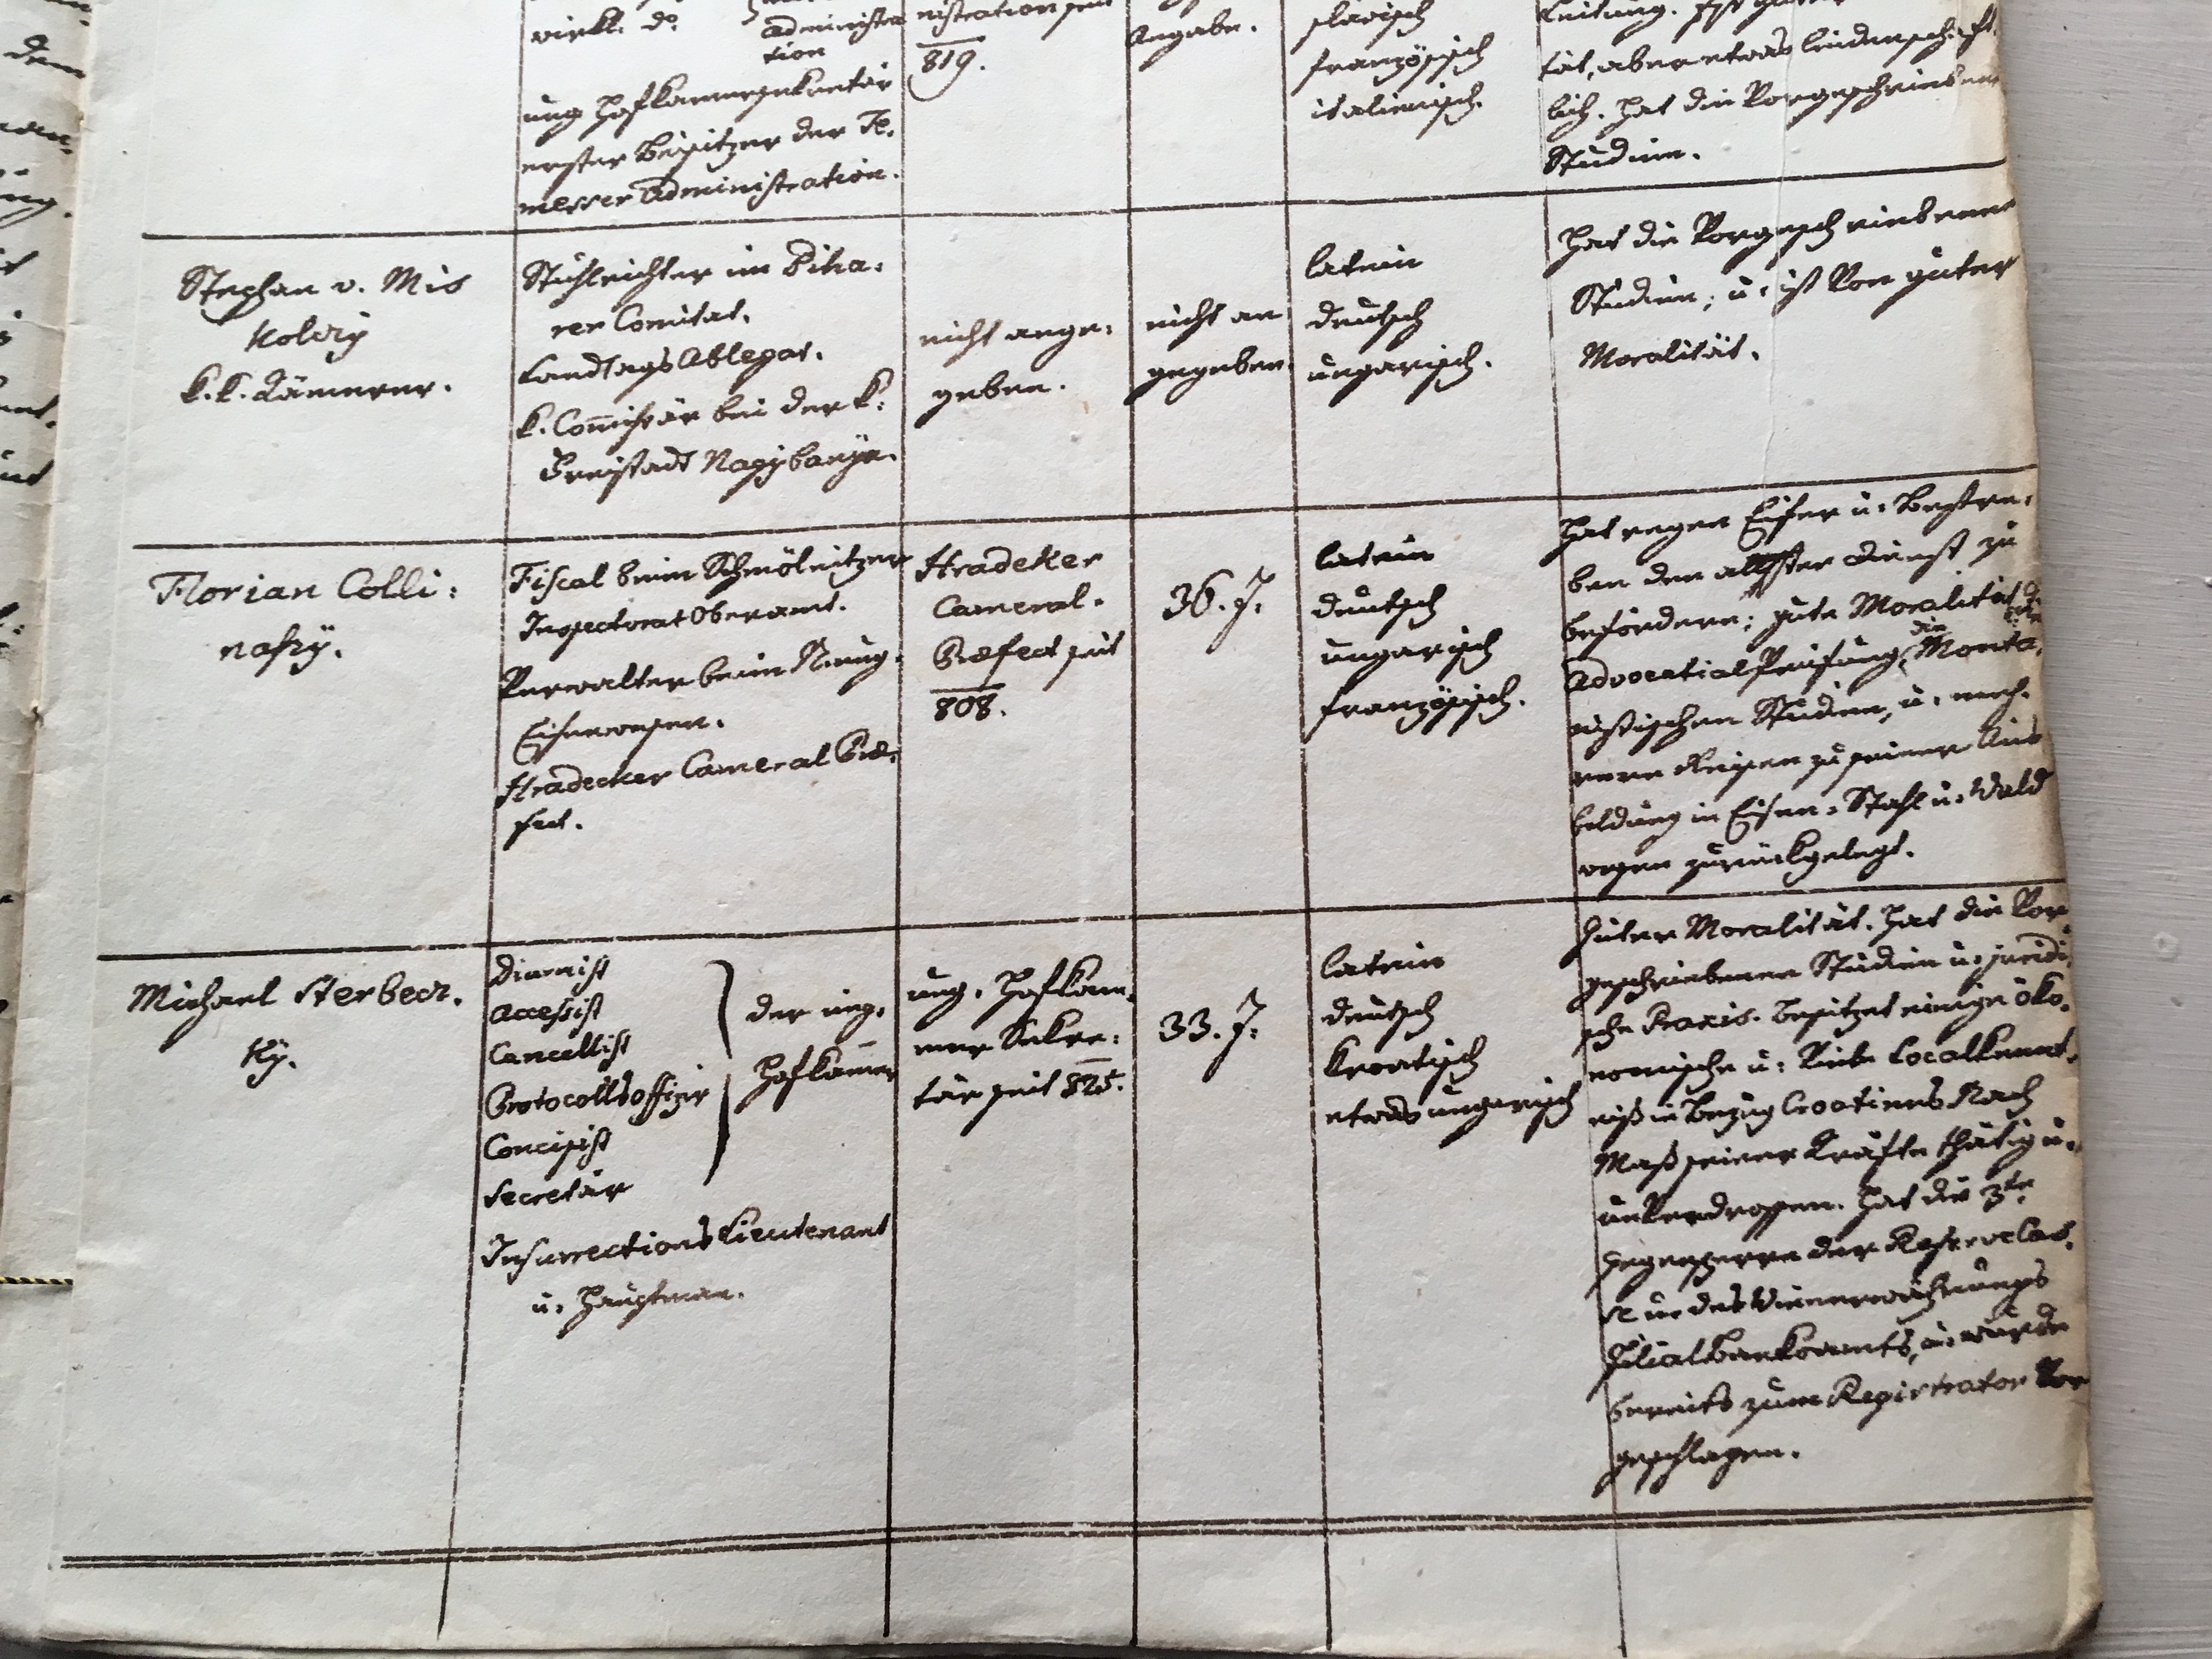 wirkl. do
administra
tion
ung. Hofkammersekretär
erster Beisitzer der Te:
messer Administration.
nistration seit
819.
Angabe.
slavisch
französisch
italienisch.
Leitung.
tät, aber etwas leidenschaft
lich. Hat die Vorgeschriebenen
Studien.
Stephan v. Mis
kolczÿ
k. k. Kämmerer.
Stuhlrichter im Biha:
rer Comitat.
Landtags Ablegat.
k. Com̄issär bei der k:
Freistadt Nagÿbanÿa.
nicht ange:
geben.
nicht an
gegeben.
latein
deutsch
ungarisch.
Hat die Vorgeschriebenen
Studien; u: ist Von guter
Moralität.
Florian Colli:
naszÿ.
Fiscal beim Schmölnitzer
Inspectorat Oberamt.
Verwalter beim
Eisenwesen.
Hradecker Cameral Præ:
fect.
Hradeker
Cameral.
Præfect seit
808.
36. J.
latein
deutsch
ungarisch
französisch.
Hat regen Eifer u: Bestre:
ben den Dienst zu
befördern; gute Moralität
Advocatial Prüfung, die Monta:
nistischen Studien, u: meh:
rere Reisen zu seiner Aus
bildung in Eisen: Stahl u: Wald
wesen zurückgelegt.
Michael Sterbecz.
kÿ.
Diurnist
Accessist
Cancellist
Protocollsoffizier
Concipist
Secretär
der ung.
Hofkam̄er
Insurrections Lieutenant
u: Hauptman.
ung. Hofkam:
mer Sekre:
tär seit 825.
33. J.
latein
deutsch
kroatisch
etwas ungarisch
Guter Moralität. Hat die Vor
geschriebenen Studien u: juridi
sche Praxis. Besitzet einige öko:
nomische u: Viele Localkennt:
niß in Bezug Croatiens Nach
Maß seiner Kräfte thätig u:
unverdrossen. Hat die 3te
Gegensperre der Reserve Cas:
se u: des Wienerwährungs
Filialbankoamts, u: wurde
bereits zum Registrator Vor
geschlagen.